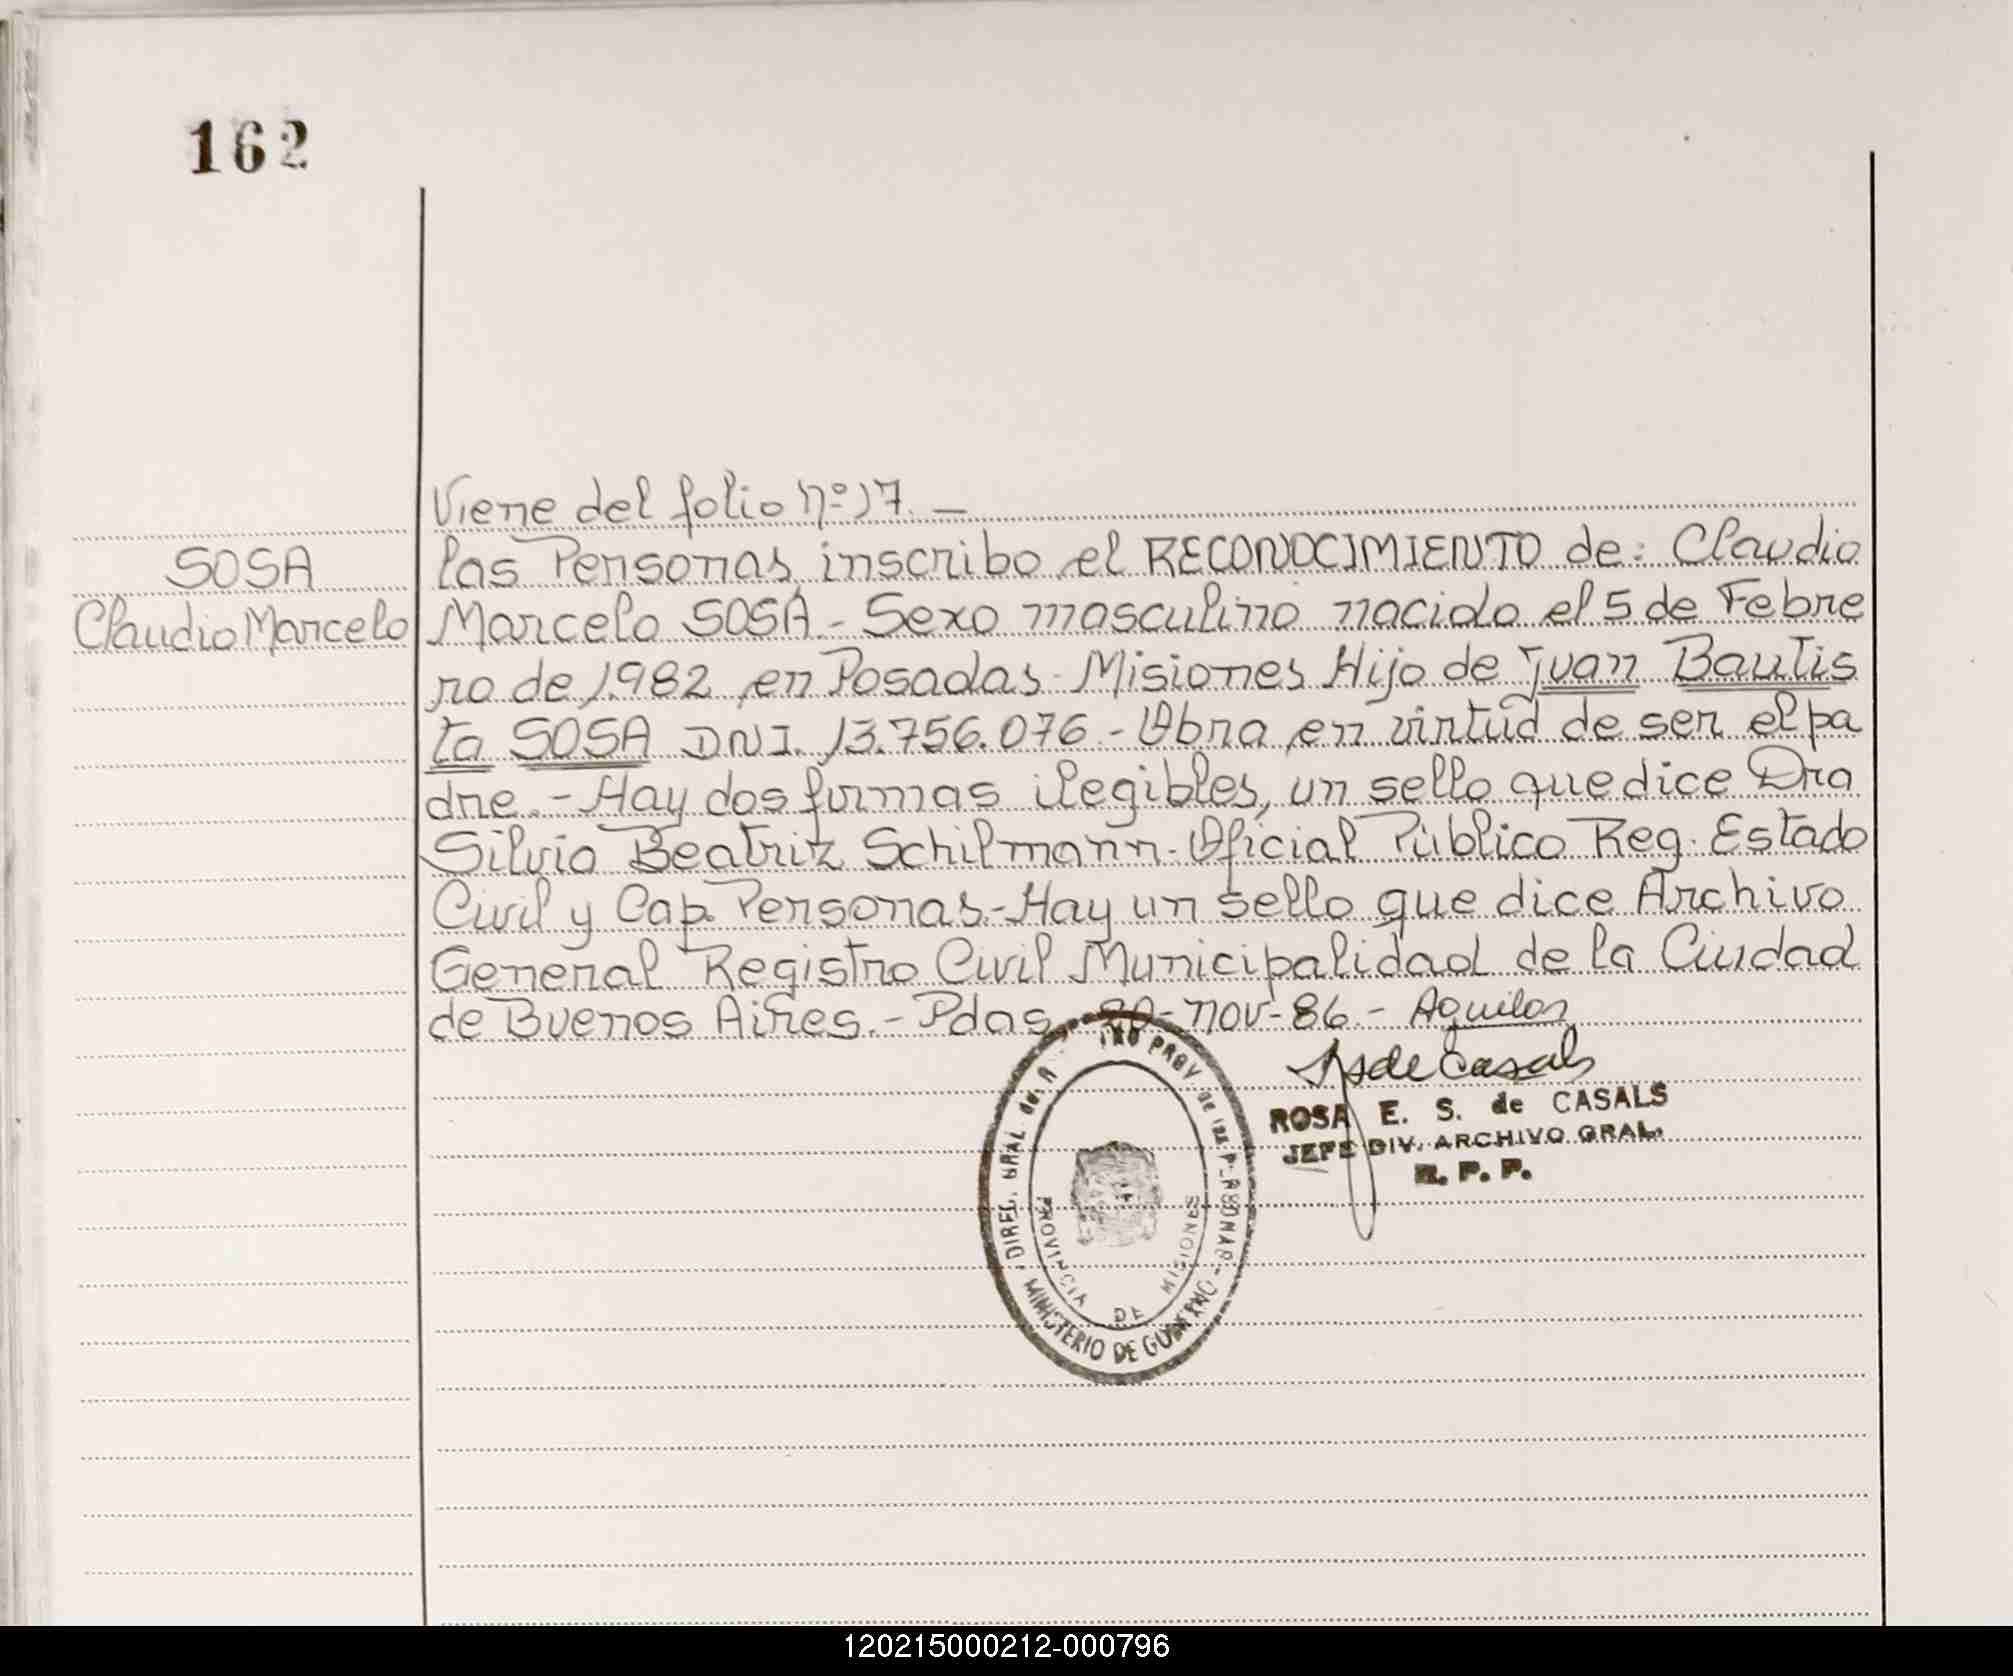 162
Viene del folio nº 17. —
SOSA
Claudio Marcelo
las Personas, inscribo el RECONOCIMIENTO de: Claudio
Marcelo SOSA.- Sexo masculino nacido el 5 de Febre
ro de 1.982 en Posadas - Misiones Hijo de Juan Bautis
ta SOSA DNI. 13.756.076.- Obra en virtud de ser el pa
dre.- Hay dos firmas ilegibles, un sello que dice Dra
Silvia Beatriz Schilmann. Oficial Público Reg. Estado
Civil y Cap. Personas.- Hay un sello que dice Archivo
General Registro Civil Municipalidad de la Ciudad
de Buenos Aires.- Pdas, 20-nov-86.-
de Casals
ROSA E. S. de CASALS
JEFE DIV. ARCHIVO GRAL.
R. P. P.
DIREC. GRAL del PROV de las PERSONAS
MINISTERIO DE GOBIERNO
PROVINCIA DE MISIONES
120215000212-000796